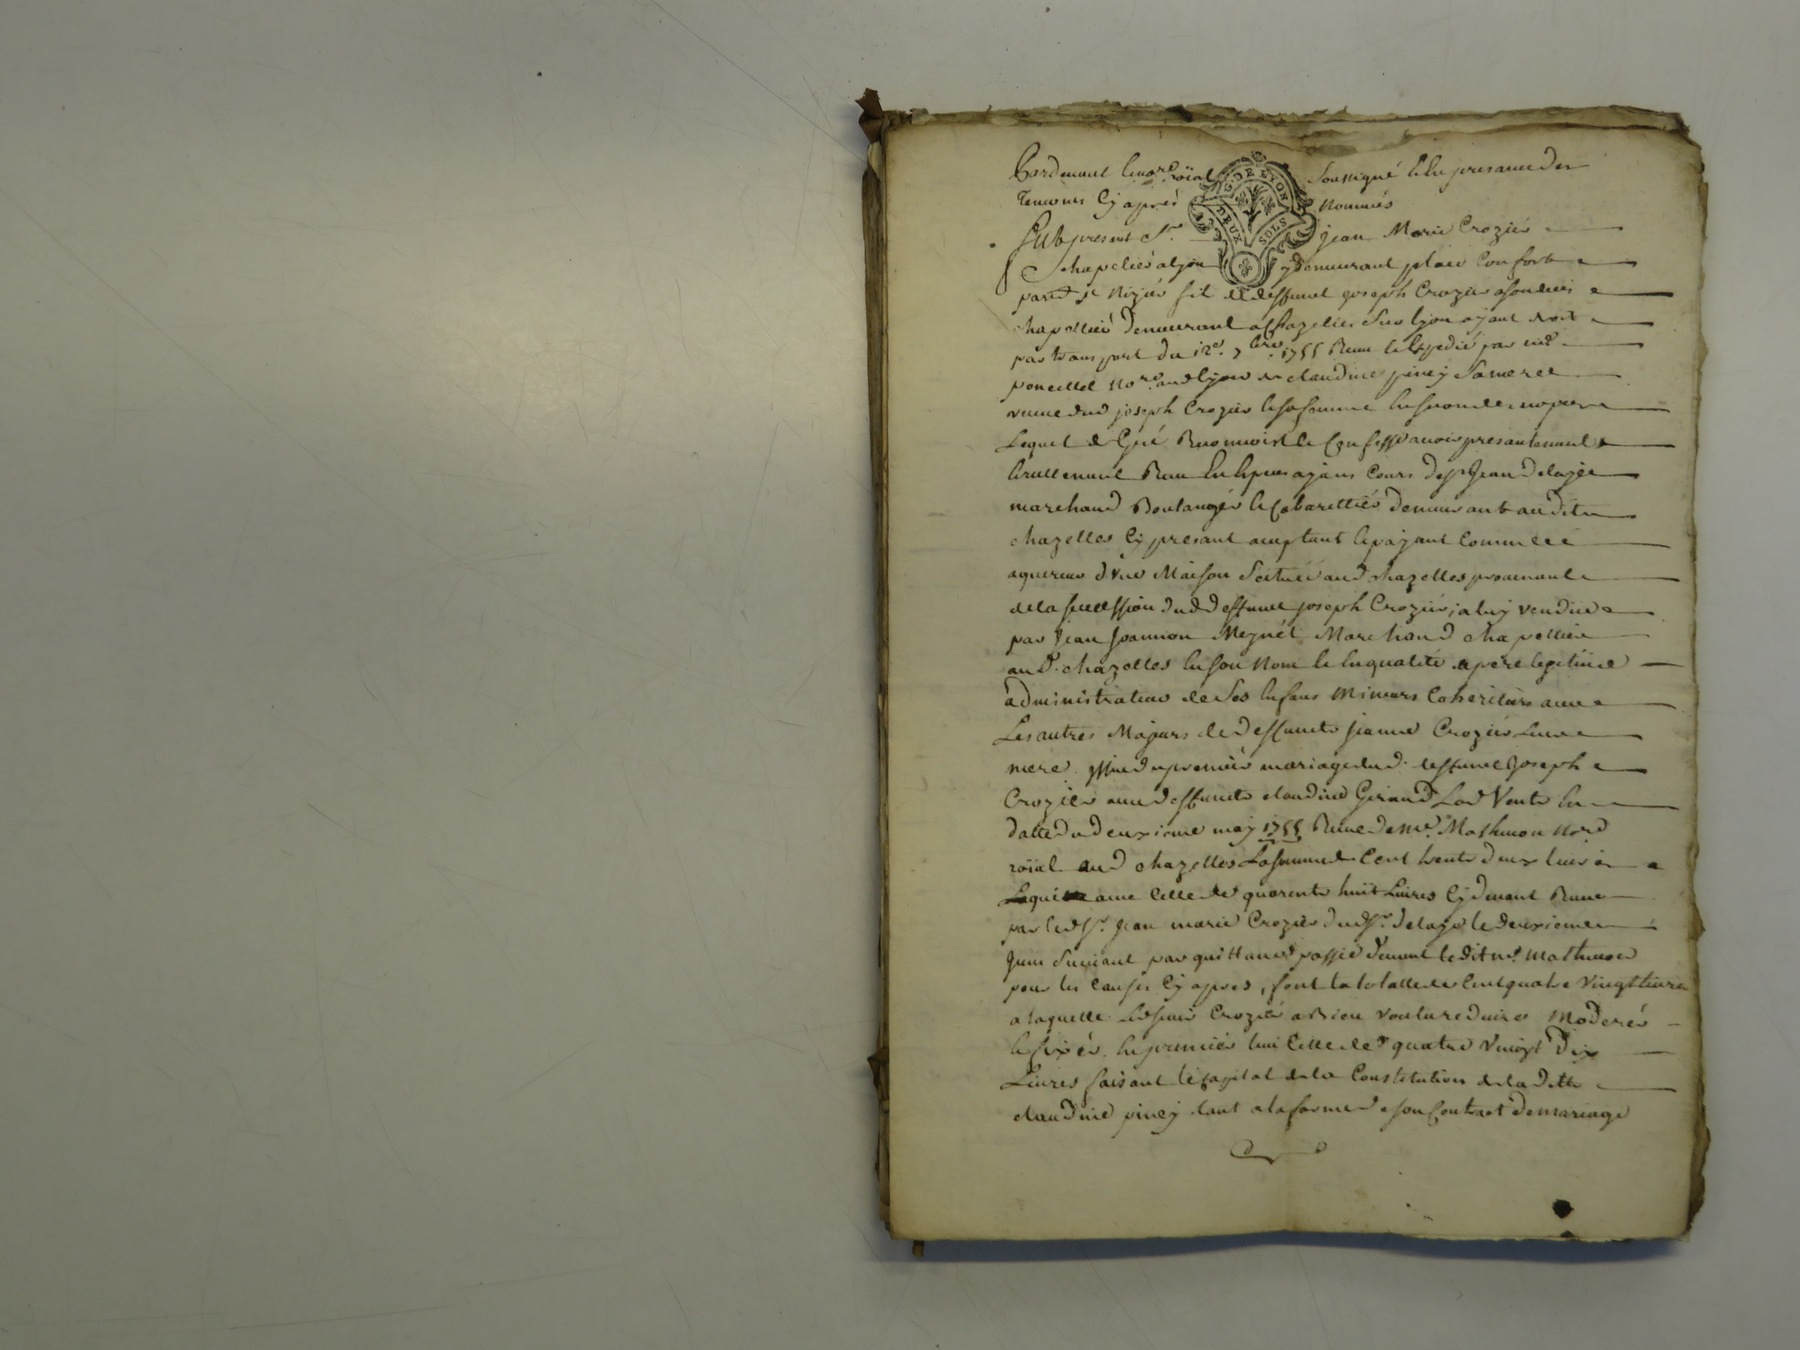 Pardevant le nore roïal soussigné et en presance des
Temoins Cy aprés nommés
fut present Sr. Jean Marie Croziér
G. DE LYON
DEUX SOLS
chapeliér a lyon y demeurant place Confort
paroisse st Nizier fils de deffunct joseph Crozier
chapelliér demeurant a Chazelles sur lyon ayant droit
par transport du 12e. 7bre. 1755 Reçu et Expedié par me
poncillet nore. aud lyon de claudine piney sa mere
veuve dud joseph Crozier sa femme en secondes nopces
Lequel de Gré Reconnoist et Confesse avoir presantement
Reellement Reçu En Especes ayans Cours de sr Jean delage
marchand Boulangér et Cabarettiér demeurant audit
chazelles Cy presant acceptant et payant Comme
aquereur d'une Maison Scituée aud chazelles provenant
de la succession dud deffunct joseph Croziér, a luy vendue
par Jean Joannon Meynét, Marchand chapellier
aud. chazelles En son Nom et En qualité de pere legitime
administrateur de ses Enfans Mineurs Coheritiers avec
Les autres Majeurs de deffuncte jeanne Croziér Leur
mere yssue du premiér mariage dud. deffunct Joseph
Croziér avec deffuncte claudine Giraud Lad Vente En
datte du deuxieme may 1755 Reçue de me. Mathevon nore
roïal aud chazelles La somme de Cent trente deux livres
Laquelle avec Celle de quarente huit Livres Cy devant Reçue
par led sr. Jean marie Croziér dud sr. delage le deuxieme
Juin suivant par quittance passée devant ledit me. Mathevon
pour les Causes Cy aprés, font la totalle de Cent quatre Vingt livres
a laquelle Led sieur Croziér a Bien voulu reduire Moderér
et fixér. En premiér lieu Celle de quatre Vingt Dix
Livres faisant le Capital de la Constitution de la ditte
claudine piney tant a la forme de son Contract de mariage